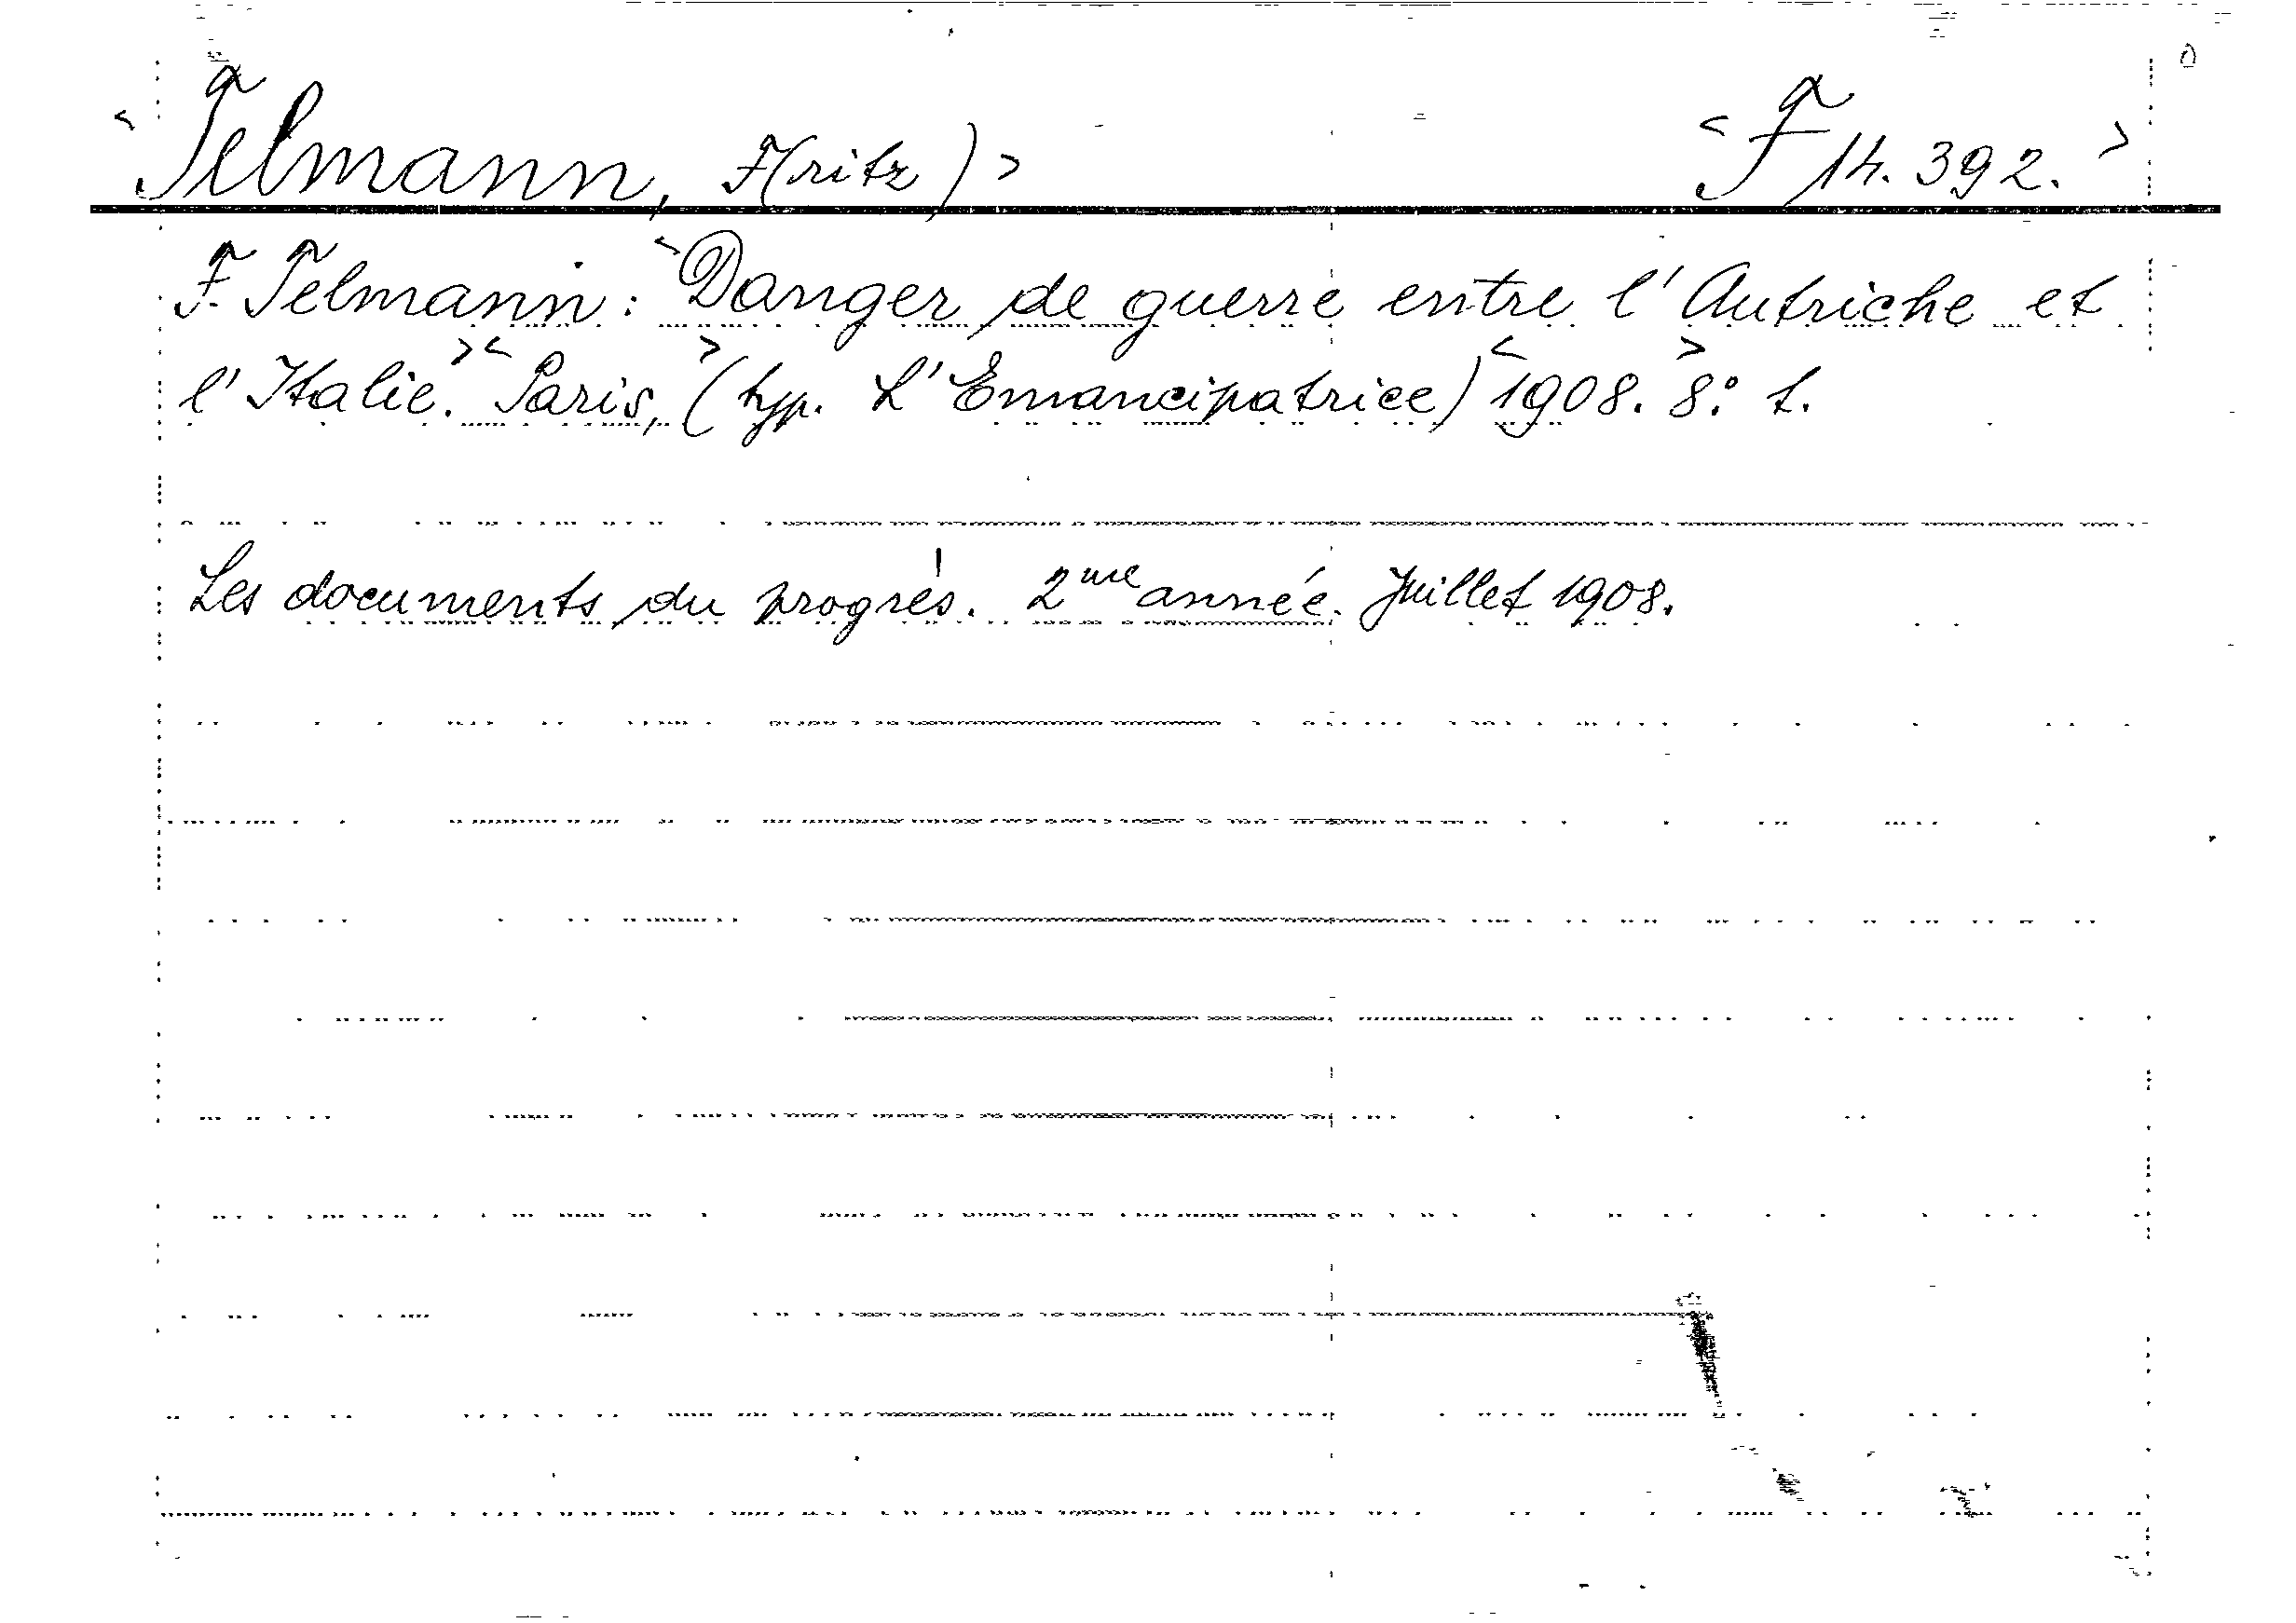 <Telmann, F(ritz)> <F 14.392.>
F. Telmann: <Danger de guerre entre l'Autriche et
l'Italie.> <Paris,> (typ. L'Emancipatrice) <1908.> 8:° t.
Les documents du progrès. 2me année. Juillet 1908.